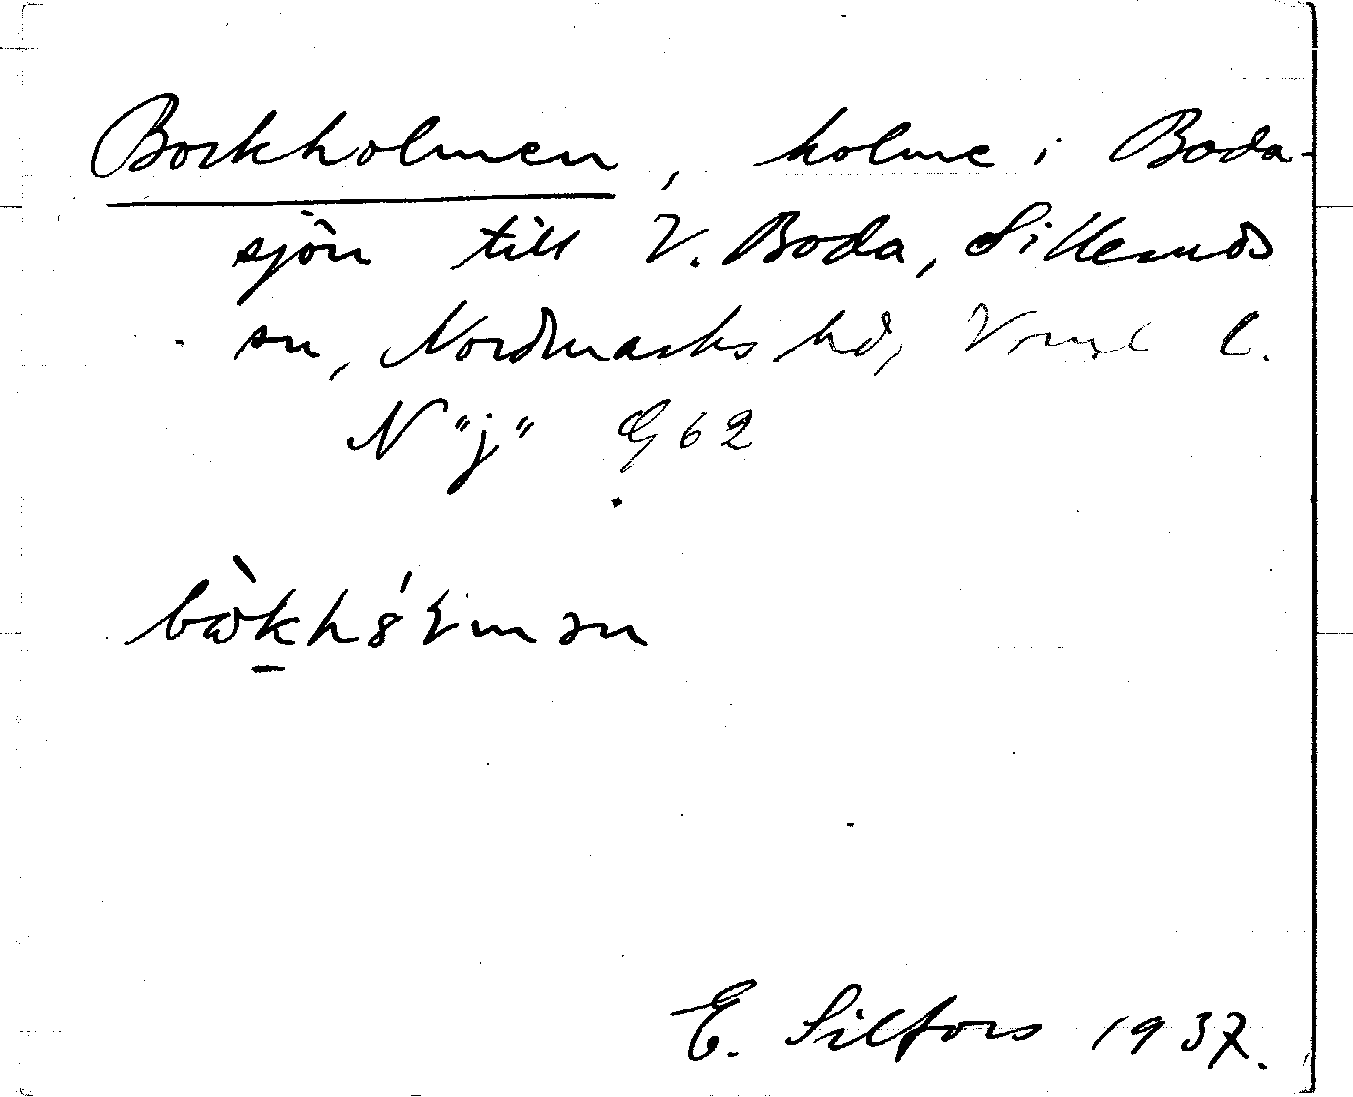 Bockholmen, holme i Boda-
sjön till V. Boda, Sillemds
sn, Nordmarks hd, Vrml l.
N "j" G 62
E. Silfors 1937.